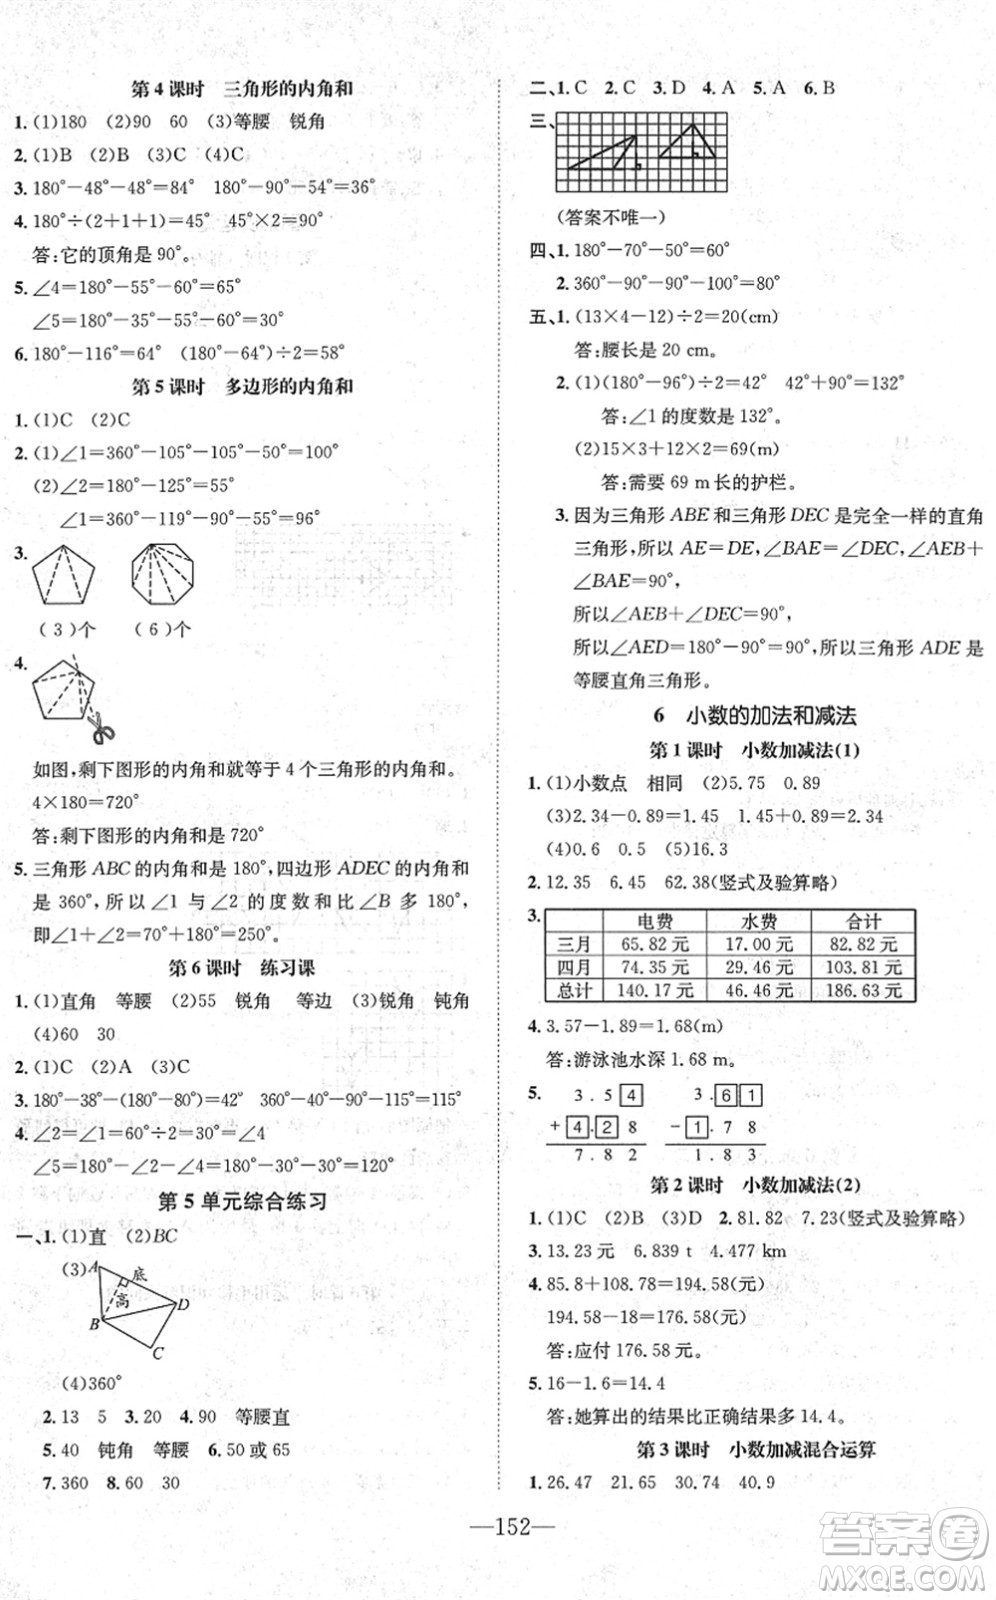 第 4 课时　三角形的内角和
1. (1)180　(2)90　60　(3)等腰　锐角
2. (1)B　(2)B　(3)C　(4)C
3. 180°－48°－48°＝84°　180°－90°－54°＝36°
4. 180°÷(2＋1＋1)＝45°　45°×2＝90°
答:它的顶角是 90°。
5. ∠4＝180°－55°－60°＝65°
∠5＝180°－35°－55°－60°＝30°
6. 180°－116°＝64°　(180°－64°)÷2＝58°
第 5 课时　多边形的内角和
1. (1)C　(2)C
2. (1)∠1＝360°－105°－105°－50°＝100°
(2)∠2＝180°－125°＝55°
∠1＝360°－119°－90°－55°＝96°
3.
( 3 )个　( 6 )个
4.
如图,剩下图形的内角和就等于 4 个三角形的内角和。
4×180＝720°
答:剩下图形的内角和是 720°
5. 三角形 ABC 的内角和是 180°,四边形 ADEC 的内角和
是 360°,所以∠1 与∠2 的度数和比∠B 多 180°,
即∠1＋∠2＝70°＋180°＝250°。
第 6 课时　练习课
1. (1)直角　等腰　(2)55　锐角　等边　(3)锐角　钝角
(4)60　30
2. (1)C　(2)A　(3)C
3. 180°－38°－(180°－80°)＝42°　360°－40°－90°－115°＝115°
4. ∠2＝∠1＝60°÷2＝30°＝∠4
∠5＝180°－∠2－∠4＝180°－30°－30°＝120°
第 5 单元综合练习
一、1. (1)直　(2)BC
(3) A 底
高 D
B
C
(4)360°
2. 13　5　3. 20　4. 90　等腰直
5. 40　钝角　等腰　6. 50 或 65
7. 360　8. 60　30
二、1. C　2. C　3. D　4. A　5. A　6. B
三、
(答案不唯一)
四、1. 180°－70°－50°＝60°
2. 360°－90°－90°－100°＝80°
五、1. (13×4－12)÷2＝20(cm)
答:腰长是 20 cm。
2. (1)(180°－96°)÷2＝42°　42°＋90°＝132°
答:∠1 的度数是 132°。
(2)15×3＋12×2＝69(m)
答:需要 69 m 长的护栏。
3. 因为三角形 ABE 和三角形 DEC 是完全一样的直角
三角形,所以 AE＝DE,∠BAE＝∠DEC,∠AEB＋
∠BAE＝90°,
所以∠AEB＋∠DEC＝90°,
所以∠AED＝180°－90°＝90°,所以三角形 ADE 是
等腰直角三角形。
6　小数的加法和减法
第 1 课时　小数加减法(1)
1. (1)小数点　相同　(2)5.75　0.89
(3)2.34－0.89＝1.45　1.45＋0.89＝2.34
(4)0.6　0.5　(5)16.3
2. 12.35　6.45　62.38(竖式及验算略)
3.
电费　水费　合计
三月　65.82 元　17.00 元　82.82 元
四月　74.35 元　29.46 元　103.81 元
总计　140.17 元　46.46 元　186.63 元
4. 3.57－1.89＝1.68(m)
答:游泳池水深 1.68 m。
5. 3. 5 4　3. 6 1
＋ 4. 2 8　－ 1. 7 8
7. 8 2　1. 8 3
第 2 课时　小数加减法(2)
1. (1)C　(2)B　(3)D　2. 81.82　7.23(竖式及验算略)
3. 13.23 元　6.839 t　4.477 km
4. 85.8＋108.78＝194.58(元)
194.58－18＝176.58(元)
答:应付 176.58 元。
5. 16－1.6＝14.4
答:她算出的结果比正确结果多 14.4。
第 3 课时　小数加减混合运算
1. 26.47　21.65　30.74　40.9
—152—
答案圈
MXQE.COM